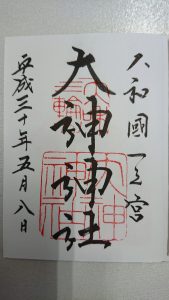 大和國一之宮
大神神社
平成三十年五月八日
三輪